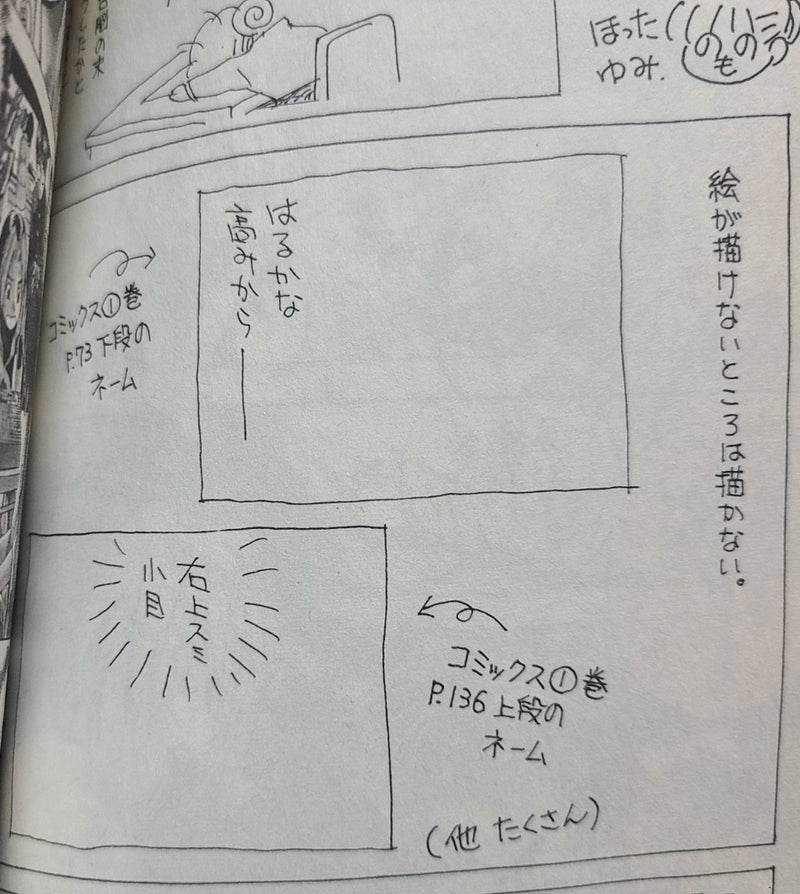 ほった
ゆみ.
絵が描けないところは描かない。
はるかな
高みから――
コミックス①巻
P.73下段の
ネーム
右上スミ
小目
コミックス①巻
P.136上段の
ネーム
(他 たくさん)